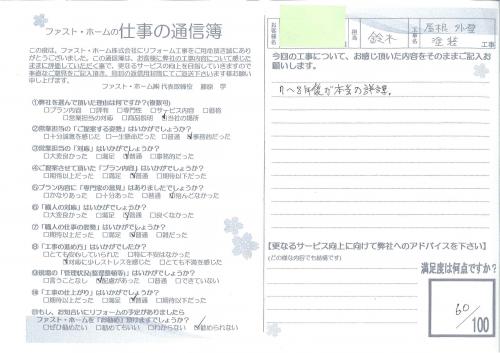 ファスト・ホームの 仕事の通信簿
この度は、ファスト・ホーム株式会社にリフォーム工事をご用命頂き誠あり
がとうございました。この通信簿は、お客様に弊社の工事内容について感じた
ままに評価していただく事で、更なるサービスの向上を目指していきますので
率直なご意見をご記入頂き、同封の返信用封筒にてご返送下さいます様お願い
申し上げます。
ファスト・ホーム㈱ 代表取締役 藤原 学
①弊社を選んで頂いた理由は何ですか?(複数可)
□プラン内容 □評判 □専門性 □サービス内容 □価格
□営業担当の対応 □商品説明 □当社の場所
②営業担当の「ご提案する姿勢」はいかがでしょうか?
□十分誠意を感じた □一生懸命だった □普通 □事務的だった
③営業担当の「対応」はいかがでしょうか?
□大変良かった □満足 □普通 □事務的だった
④ご提案させて頂いた「プラン内容」はいかがでしょうか?
□期待以上だった □満足 □普通 □期待以下だった
⑤プラン内容に「専門家の意見」はありましたでしょうか?
□かなりあった □十分あった □普通 □殆んどなかった
⑥「職人の対応」はいかがでしょうか?
□大変良かった □満足 □普通 □良くなかった
⑦「職人の仕事の姿勢」はいかがでしょうか?
□期待以上だった □満足 □普通 □雑だった
⑧「工事の進め方」はいかがでしたか?
□とても安心していられた □特に不安はなかった
□対応に少しストレスを感じた □とても不満だった
⑨現場の「管理状況(整理整頓等)」はいかがでしょうか?
□言うことなし □配慮があった □普通 □できていない
⑩「工事の仕上がり」はいかがでしょうか?
□期待以上だった □満足 □普通 □期待以下だった
⑪もし、お知合いにリフォームの予定がありましたら
ファスト・ホームを「お勧め」頂けますでしょうか?
□ぜひ勧めたい □勧めてもいい □わからない □勧められない
お客様名
担当 鈴木
屋根 外壁
塗装 工事
今回の工事について、お感じ頂いた内容をそのままご記入お
願いします。
7〜8年後が本当の評価。
【更なるサービス向上に向けて弊社へのアドバイスを下さい】
(どの様な内容でも結構です)
満足度は何点ですか?
60
/100